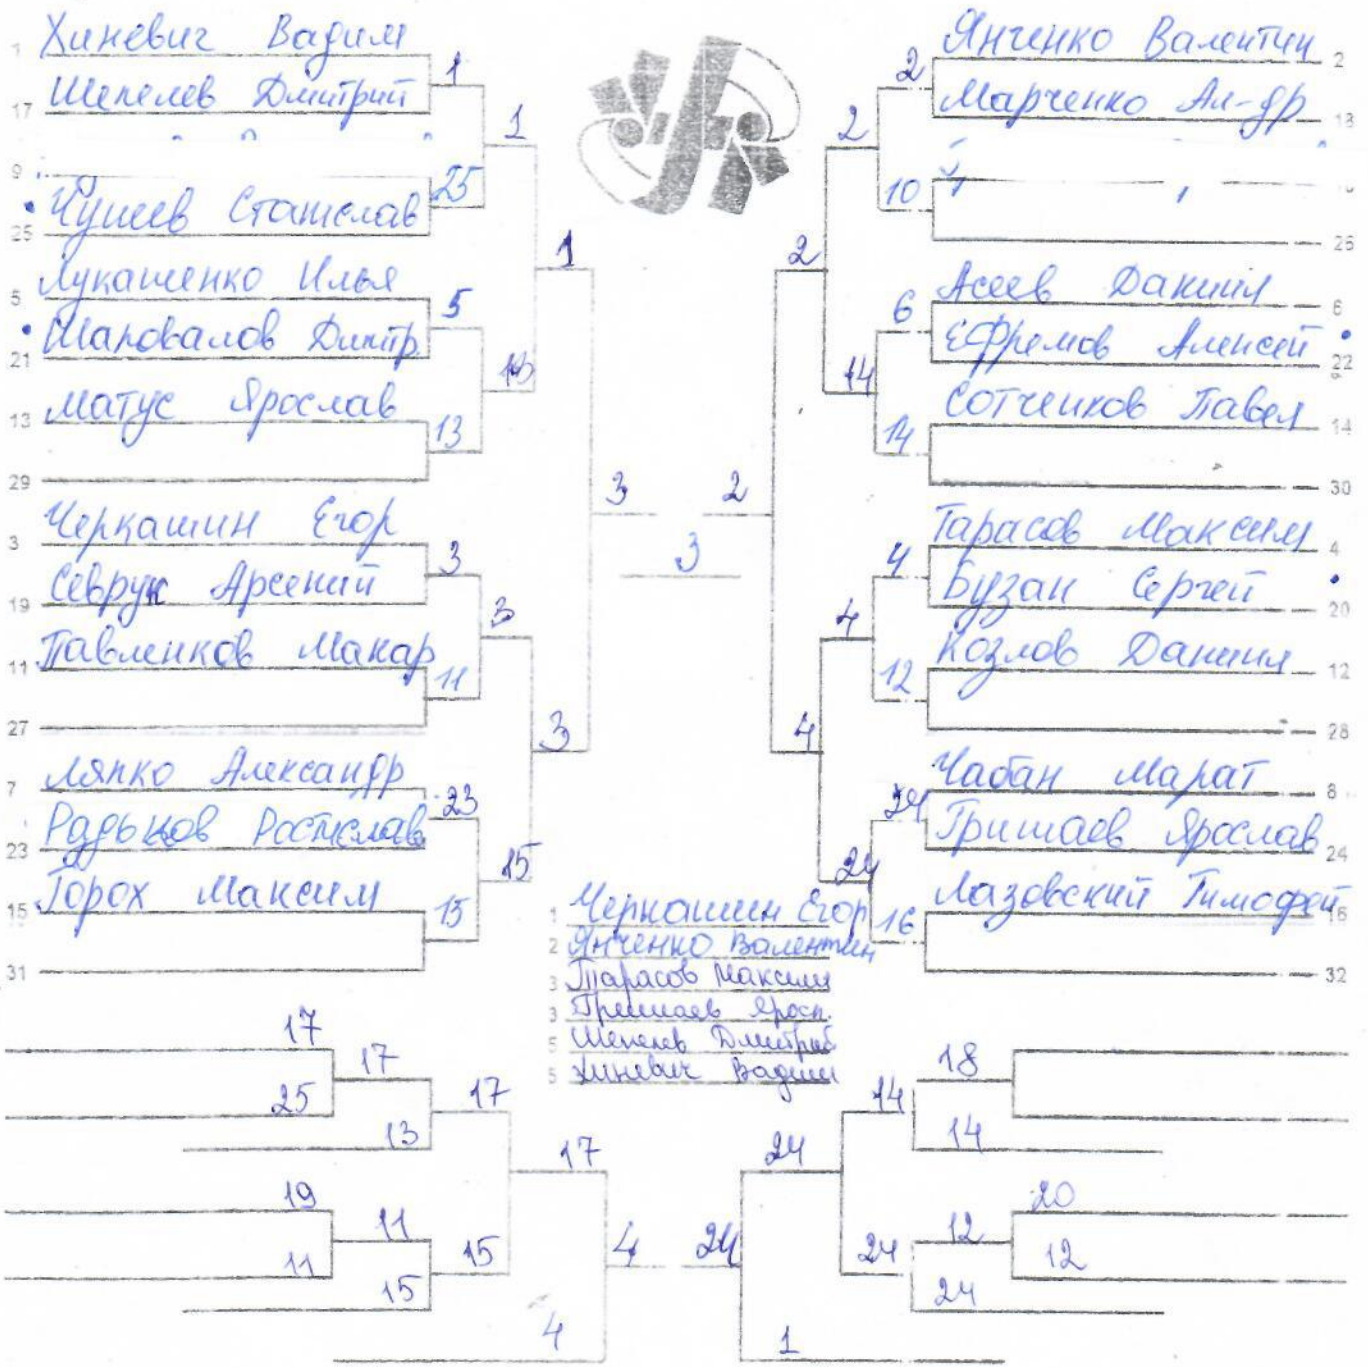 1 Хиневич Вадим
1
Шепелев Дмитрий
17
1
9
25
Чушев Станислав
25
1
Лукашенко Илья
5
5
Шаповалов Дмитр.
21
13
Матус Ярослав
13
13
29
3
Черкашин Егор
3
3
Севрук Арсений
19
3
Павленков Макар
11
11
27
3
Ляпко Александр
7
23
Радьков Ростислав
23
15
Горох Максим
15
15
31
Янченко Валентин 2
2
Марченко Ал-др
18
2
10
26
2
Асеев Даниил
6
6
Ефремов Алексей
22
14
Сотченков Павел
14
14
30
2
3
Тарасов Максим
4
4
Бузан Сергей
20
4
Козлов Даниил
12
12
28
4
Чабан Марат
8
24
Гришаев Ярослав
24
24
Лазовский Тимофей
16
16
32
1 Черкашин Егор
2 Янченко Валентин
3 Тарасов Максим
3 Гришаев Яросл.
5 Шепелев Дмитрий
5 Хиневич Вадим
17
17
25
17
13
17
19
11
11
15
15
4
4
18
14
14
24
20
12
12
24
24
24
1